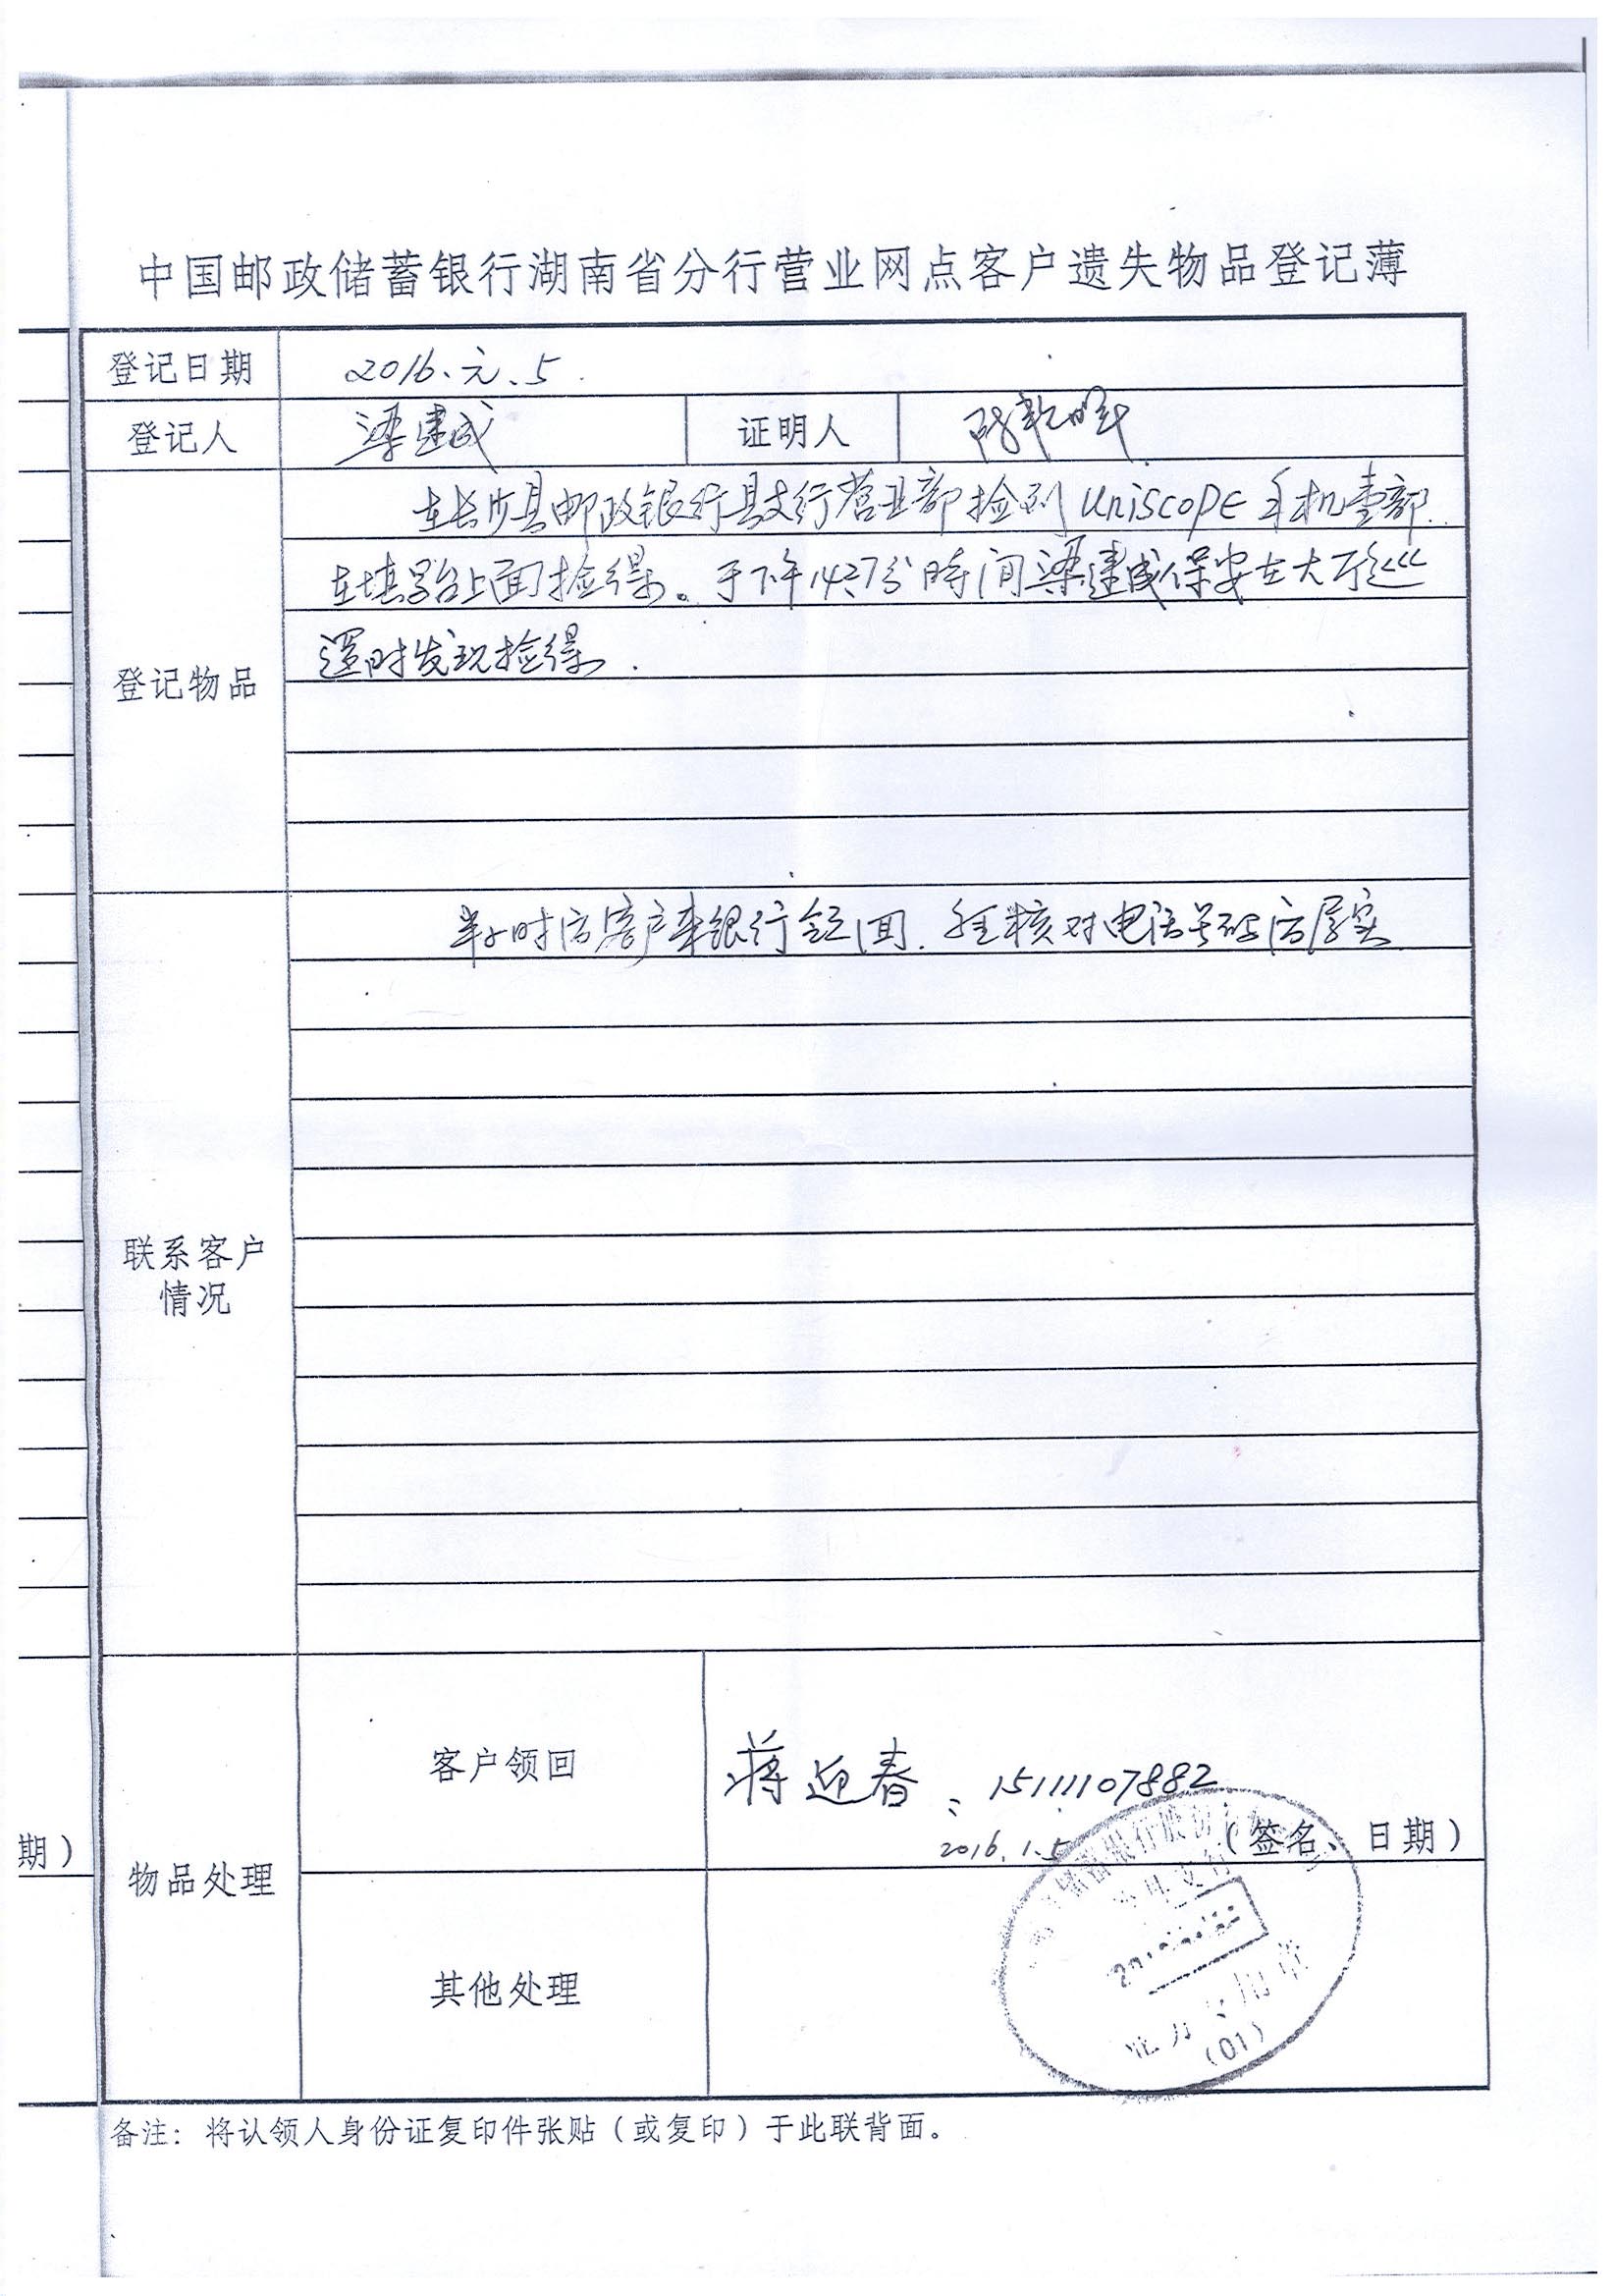 中国邮政储蓄银行湖南省分行营业网点客户遗失物品登记薄
登记日期 2016.元.5
登记人 梁建成 证明人
在长沙县邮政银行县支行营业部捡到 uniscope 手机壹部
在填写台上面捡得。于下午14:27分時间梁建成保安在大厅巡
逻时发现捡得.
登记物品
半小时后客户来银行领回.经核对电话号码后属实
联系客户
情况
客户领回 蒋迎春、15111107882
2016.1.5 (签名、日期)
期)
物品处理
其他处理
(01)
备注:将认领人身份证复印件张贴(或复印)于此联背面。